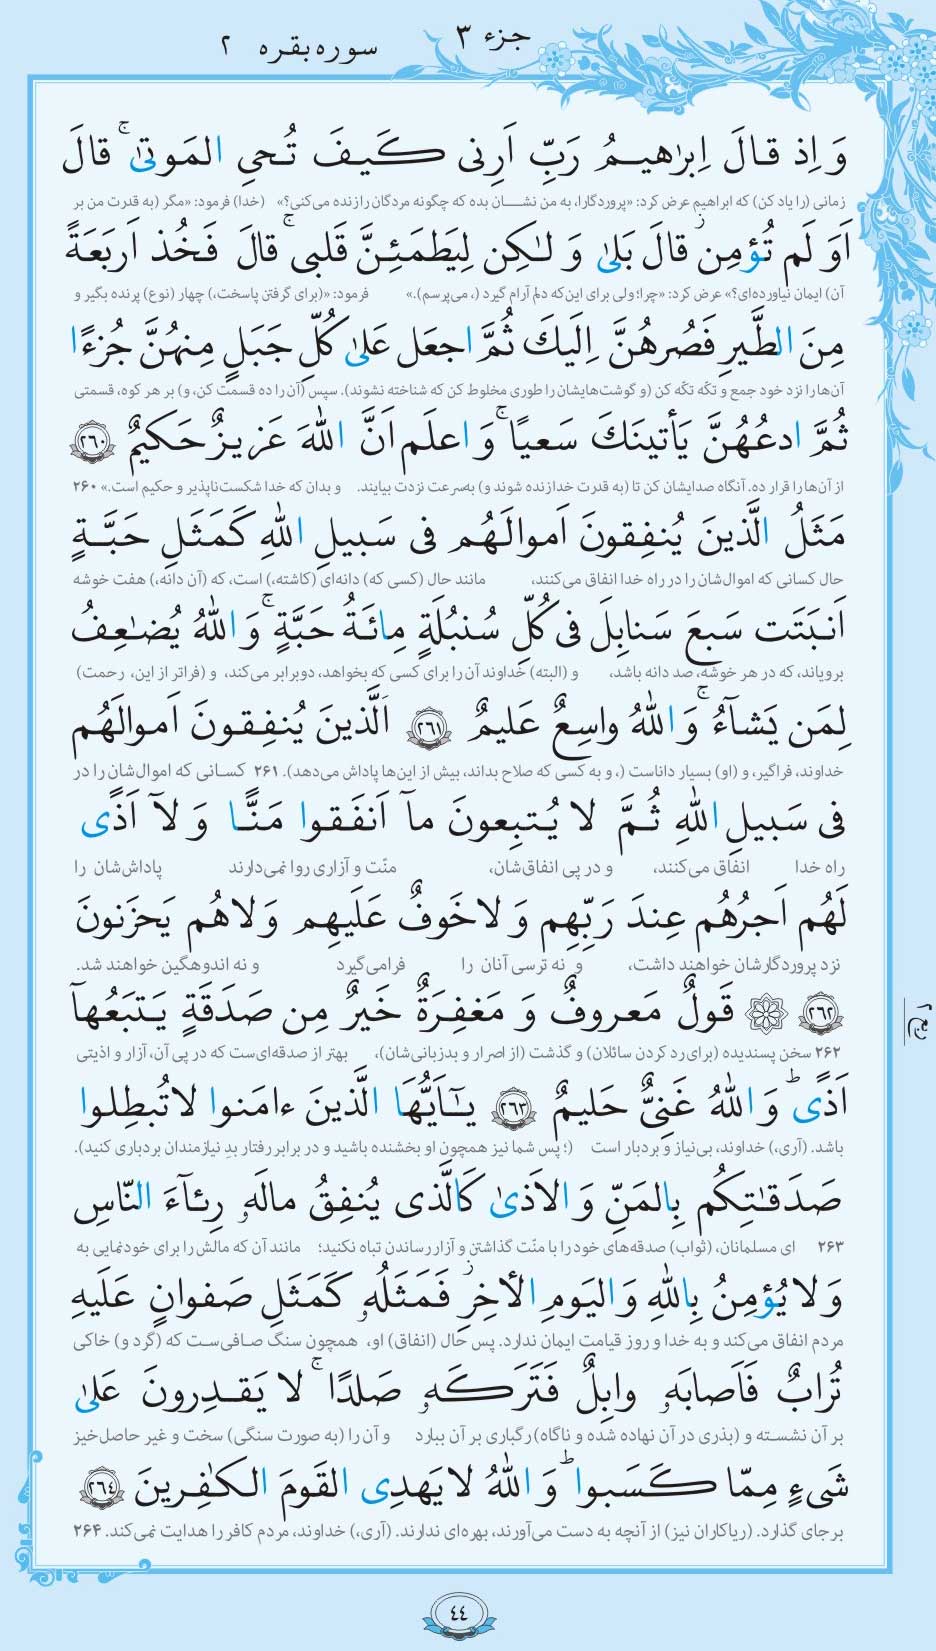 جزء ۳
سوره بقره ۲
وَ اِذ قالَ اِبرٰهيمُ رَبِّ اَرِنى كَيفَ تُحىِ المَوتىٰ ۚ قالَ
زمانی (را یاد کن) که ابراهیم عرض کرد: «پروردگارا، به من نشان بده که چگونه مردگان را زنده می‌کنی؟» (خدا) فرمود: «مگر (به قدرت من بر
اَوَ لَم تُؤمِن ۖ قالَ بَلىٰ وَ لٰكِن لِيَطمَئِنَّ قَلبى ۚ قالَ فَخُذ اَربَعَةً
آن) ایمان نیاورده‌ای؟» عرض کرد: «چرا؛ ولی برای این‌که دلم آرام گیرد (، می‌پرسم).» فرمود: «(برای گرفتن پاسخت،) چهار (نوع) پرنده بگیر و
مِنَ الطَّيرِ فَصُرهُنَّ اِلَيكَ ثُمَّ اجعَل عَلىٰ كُلِّ جَبَلٍ مِنهُنَّ جُزءًا
آن‌ها را نزد خود جمع و تکّه تکّه کن (و گوشت‌هایشان را طوری مخلوط کن که شناخته نشوند). سپس (آن را ده قسمت کن، و) بر هر کوه، قسمتی
ثُمَّ ادعُهُنَّ يَأتينَكَ سَعيًا ۚ وَ اعلَم اَنَّ اللّٰهَ عَزيزٌ حَكيمٌ ﴿٢٦٠﴾
از آن‌ها را قرار ده. آنگاه صدایشان کن تا (به قدرت خدا زنده شوند و) به‌سرعت نزدت بیایند. و بدان که خدا شکست‌ناپذیر و حکیم است.» ۲۶۰
مَثَلُ الَّذينَ يُنفِقونَ اَموالَهُم فى سَبيلِ اللّٰهِ كَمَثَلِ حَبَّةٍ
حال کسانی که اموال‌شان را در راه خدا انفاق می‌کنند، مانند حال (کسی که) دانه‌ای (کاشته،) است، که (آن دانه،) هفت خوشه
اَنبَتَت سَبعَ سَنابِلَ فى كُلِّ سُنبُلَةٍ مِائَةُ حَبَّةٍ ۚ وَ اللّٰهُ يُضٰعِفُ
برویاند، که در هر خوشه، صد دانه باشد، و (البته) خداوند آن را برای کسی که بخواهد، دوبرابر می‌کند، و (فراتر از این، رحمت)
لِمَن يَشآءُ ۚ وَ اللّٰهُ واسِعٌ عَليمٌ ﴿٢٦١﴾ اَلَّذينَ يُنفِقونَ اَموالَهُم
خداوند، فراگیر، و (او) بسیار داناست (، و به کسی که صلاح بداند، بیش از این‌ها پاداش می‌دهد). ۲۶۱ کسانی که اموال‌شان را در
فى سَبيلِ اللّٰهِ ثُمَّ لا يُتبِعونَ مآ اَنفَقوا مَنًّا وَ لآ اَذًى
راه خدا انفاق می‌کنند، و در پی انفاق‌شان، منّت و آزاری روا نمی‌دارند پاداش‌شان را
لَهُم اَجرُهُم عِندَ رَبِّهِم وَ لا خَوفٌ عَلَيهِم وَ لا هُم يَحزَنونَ
نزد پروردگارشان خواهند داشت، و نه ترسی آنان را فرامی‌گیرد و نه اندوهگین خواهند شد.
﴿٢٦٢﴾ قَولٌ مَعروفٌ وَ مَغفِرَةٌ خَيرٌ مِن صَدَقَةٍ يَتبَعُهآ
۲۶۲ سخن پسندیده (برای رد کردن سائلان) و گذشت (از اصرار و بدزبانی‌شان)، بهتر از صدقه‌ای‌ست که در پی آن، آزار و اذیتی
اَذًى ۗ وَ اللّٰهُ غَنِىٌّ حَليمٌ ﴿٢٦٣﴾ يٰٓاَيُّهَا الَّذينَ ءامَنوا لا تُبطِلوا
باشد. (آری،) خداوند، بی‌نیاز و بردبار است (؛ پس شما نیز همچون او بخشنده باشید و در برابر رفتار بدِ نیازمندان بردباری کنید).
صَدَقٰتِكُم بِالمَنِّ وَ الاَذىٰ كَالَّذى يُنفِقُ مالَهۥ رِئآءَ النّاسِ
۲۶۳ ای مسلمانان، (ثواب) صدقه‌های خود را با منّت گذاشتن و آزار رساندن تباه نکنید؛ مانند آن که مالش را برای خودنمایی به
وَ لا يُؤمِنُ بِاللّٰهِ وَ اليَومِ الأخِرِ ۖ فَمَثَلُهۥ كَمَثَلِ صَفوانٍ عَلَيهِ
مردم انفاق می‌کند و به خدا و روز قیامت ایمان ندارد. پس حال (انفاق) او، همچون سنگ صافی‌ست که (گرد و) خاکی
تُرابٌ فَاَصابَهۥ وابِلٌ فَتَرَكَهۥ صَلدًا ۚ لا يَقدِرونَ عَلىٰ
بر آن نشسته و (بذری در آن نهاده شده و ناگاه) رگباری بر آن ببارد و آن را (به صورت سنگی) سخت و غیر حاصل‌خیز
شَىءٍ مِمّا كَسَبوا ۗ وَ اللّٰهُ لا يَهدِى القَومَ الكٰفِرينَ ﴿٢٦٤﴾
بر جای گذارد. (ریاکاران نیز) از آنچه به دست می‌آورند، بهره‌ای ندارند. (آری،) خداوند، مردم کافر را هدایت نمی‌کند. ۲۶۴
٤٤